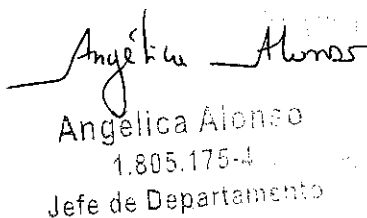 Angélica Alonso
Angélica Alonso
1.805.175-4
Jefe de Departamento